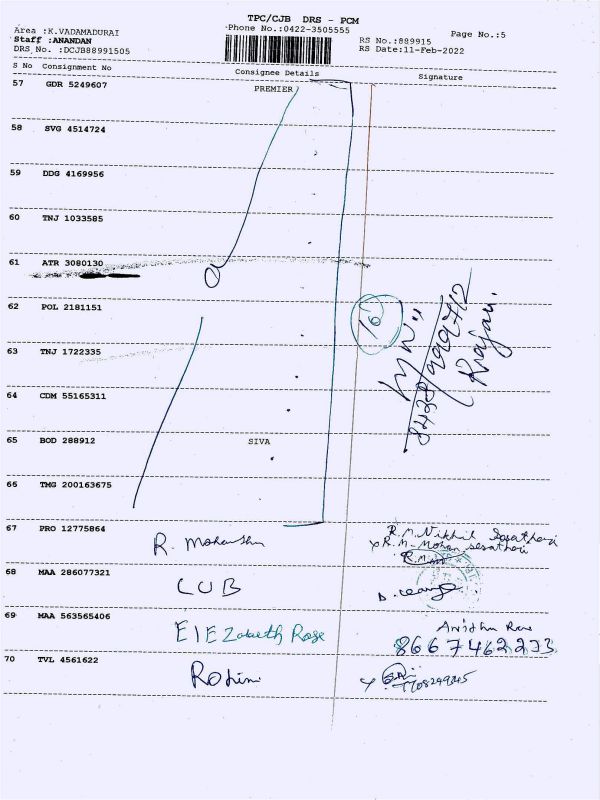 TPC/CJB DRS - PCM
Area :K.VADAMADURAI
Phone No.:0422-3505555
Page No.:5
Staff :ANANDAN
RS No.:889915
DRS No. :DCJB88991505
RS Date:11-Feb-2022
S No Consignment No Consignee Details Signature
57 GDR 5249607 PREMIER
58 SVG 4514724
59 DDG 4169956
60 TNJ 1033585
61 ATR 3080130
62 POL 2181151
63 TNJ 1722335
64 CDM 55165311
65 BOD 288912 SIVA
66 TMG 200163675
67 PRO 12775864 R. R.M. Nikhil
R.M. Mohan
68 MAA 286077321 CUB
69 MAA 563565406 ElEZabeth Rose
8667462233
70 TVL 4561622 Rohini